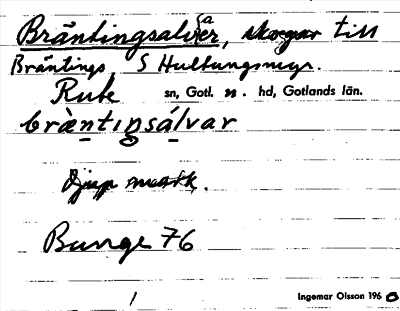 Bräntingsalvar, skogar till
Bräntings S Hultungsmyr.
Rute sn, Gotl. n. hd, Gotlands län.
bràntıŋsálvar
Djup mark.
Bunge 76
1
Ingemar Olsson 1960